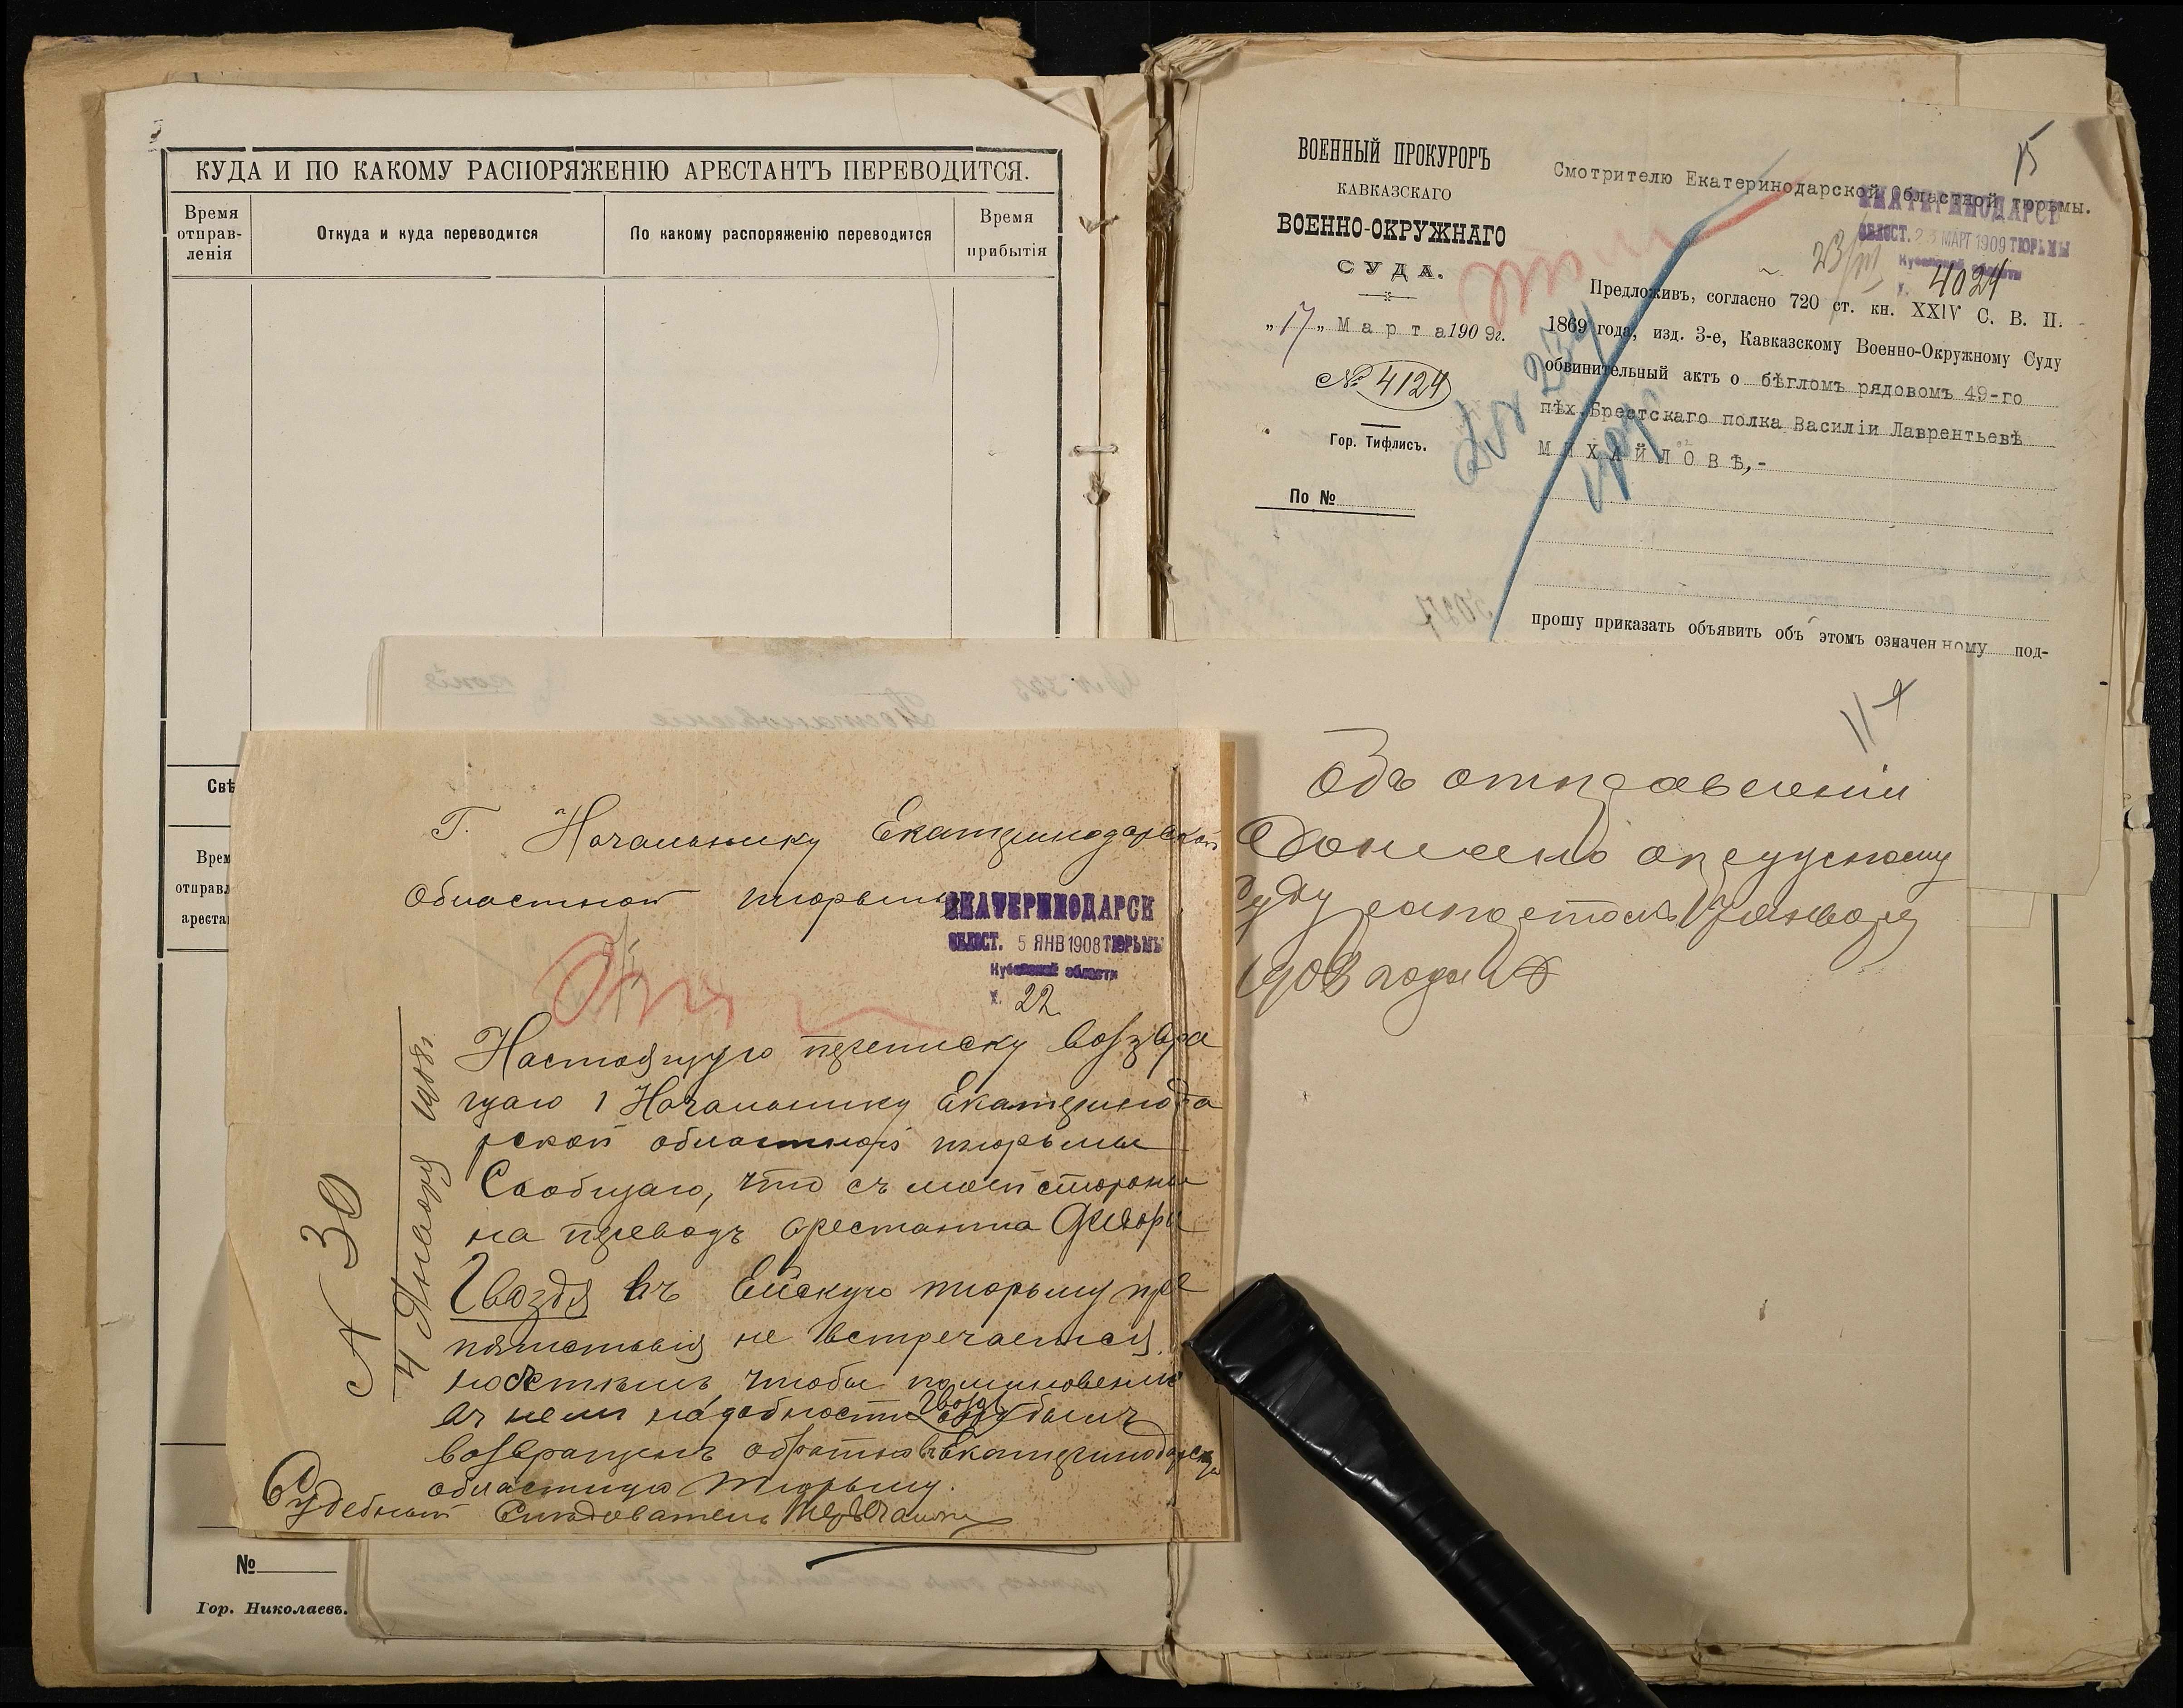 КУДА И ПО КАКОМУ РАСПОРЯЖЕНІЮ АРЕСТАНТЪ ПЕРЕВОДИТСЯ.
Время отправ-ленія
Откуда и куда переводится
По какому распоряженію переводится
Время прибытія
Свѣ
Врем
отправл
ареста
№
Гор. Николаевъ.
Г. Начальнику Екатеринодарской
Областной тюрьмы
ЕКАТЕРИНОДАРСК
ОБЛАСТ. 5 ЯНВ 1908 ТЮРЬМЫ
Кубанской области
22
№ 30
4 Января 1908 г.
Настоящую переписку возвра
щаю Начальнику Екатеринода
рской областной тюрьмы
Сообщаю, что съ моей стороны
на переводъ арестанта Федора
Гвоздя въ Ейскую тюрьму пре
пятствія не встречается,
но съ тѣмъ, чтобы по миновеніи
въ немъ надобности Гвоздь былъ
возвращенъ обратно въ Екатеринодарскую
областную тюрьму.
Судебный Слѣдователь
ВОЕННЫЙ ПРОКУРОРЪ
КАВКАЗСКАГО
ВОЕННО-ОКРУЖНАГО
СУДА.
„17„ Марта 1909г.
№ 4124
Гор. Тифлисъ.
По №
15
Смотрителю Екатеринодарской Областной тюрьмы.
ЕКАТЕРИНОДАРСК
ОБЛАСТ. 23 МАРТ 1909 ТЮРЬМЫ
Кубанской области
23/III 4024
Предложивъ, согласно 720 ст. кн. XXIV С. В. П.
1869 года, изд. 3-е, Кавказскому Военно-Окружному Суду
обвинительный актъ о бѣгломъ рядовомъ 49-го
пѣх. Брестскаго полка Василіи Лаврентьевѣ
МИХАЙЛОВѢ,-
прошу приказать объявить объ этомъ означенному под-
Объ отправленіи
Донесено окружному
Суду рапортомъ Января
1908 года №